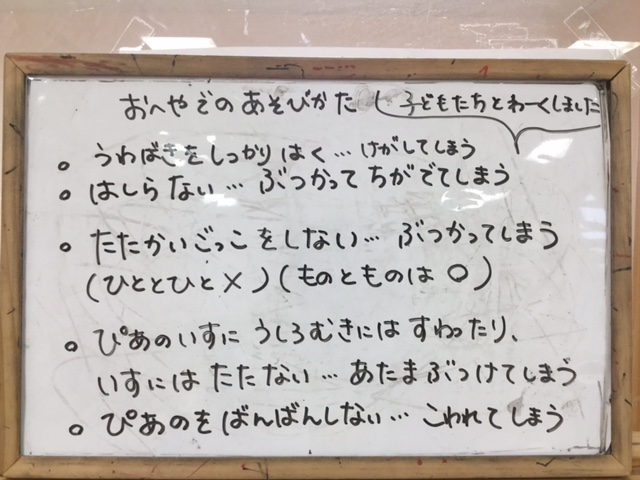 おへやでのあそびかた
子どもたちとわーくしました
○ うわばきをしっかりはく… けがしてしまう
○ はしらない… ぶつかってちがでてしまう
○ たたかいごっこをしない… ぶつかってしまう
(ひととひと×)(ものとものは○)
○ ぴあのいすに うしろむきにはすわったり、
いすにはたたない… あたまぶつけてしまう
○ ぴあのをばんばんしない… こわれてしまう